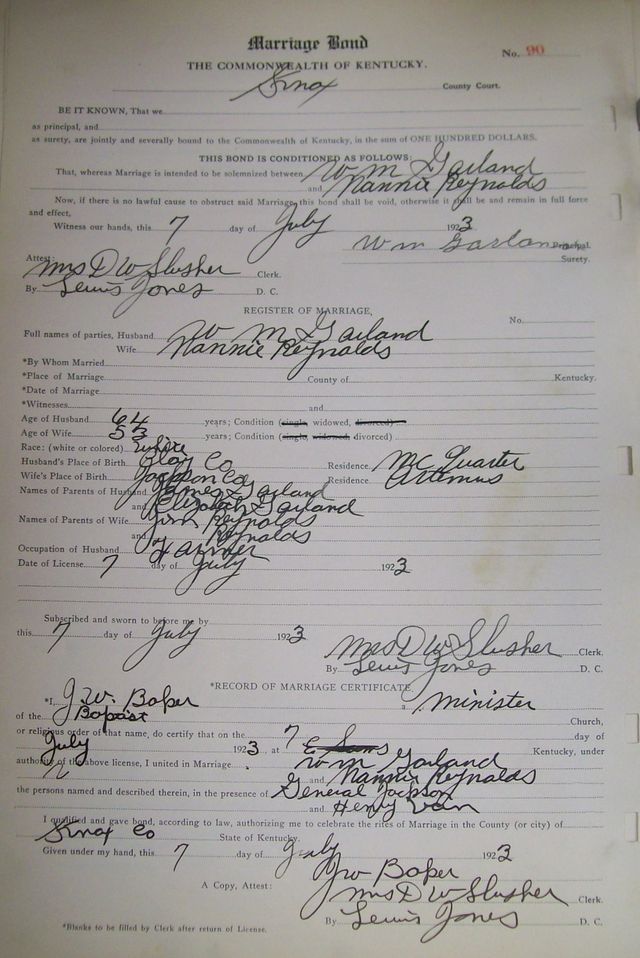 Marriage Bond
No. 90
THE COMMONWEALTH OF KENTUCKY.
Knox County Court.
BE IT KNOWN, That we
as principal, and
as surety, are jointly and severally bound to the Commonwealth of Kentucky, in the sum of ONE HUNDRED DOLLARS.
THIS BOND IS CONDITIONED AS FOLLOWS:
That, whereas Marriage is intended to be solemnized between W M Garland
and Nannie Reynolds
Now, if there is no lawful cause to obstruct said Marriage, this bond shall be void, otherwise it shall be and remain in full force
and effect,
Witness our hands, this 7 day of July 1923
Wm Garland Principal.
Attest: Surety.
Mrs D W Slusher Clerk.
By Lewis Jones D. C.
REGISTER OF MARRIAGE,
No.
Full names of parties, Husband W M Garland
Wife Nannie Reynolds
*By Whom Married
*Place of Marriage County of Kentucky.
*Date of Marriage
*Witnesses and
Age of Husband 64 years; Condition (single, widowed, divorced)
Age of Wife 53 years; Condition (single, widowed, divorced)
Race: (white or colored) White
Husband's Place of Birth Clay Co Residence Mc Quarter
Wife's Place of Birth Jackson Co Residence Artemus
Names of Parents of Husband James Garland
and Elizabeth Garland
Names of Parents of Wife Jim Reynolds
and Reynolds
Occupation of Husband Farmer
Date of License 7 day of July 1923
Subscribed and sworn to before me by
this 7 day of July 1923
Mrs D W Slusher Clerk.
By Lewis Jones D. C.
*RECORD OF MARRIAGE CERTIFICATE,
*I, J. W. Baker a minister
of the Baptist Church,
or religious order of that name, do certify that on the 7 day of
July 1923, at Kentucky, under
authority of the above license, I united in Marriage W M Garland
and Nannie Reynolds
the persons named and described therein, in the presence of General Jackson
and Henry Van
I qualified and gave bond, according to law, authorizing me to celebrate the rites of Marriage in the County (or city) of
Knox Co State of Kentucky.
Given under my hand, this 7 day of July 1923
J W Baker
A Copy, Attest: Mrs D W Slusher Clerk.
By Lewis Jones D. C.
*Blanks to be filled by Clerk after return of License.